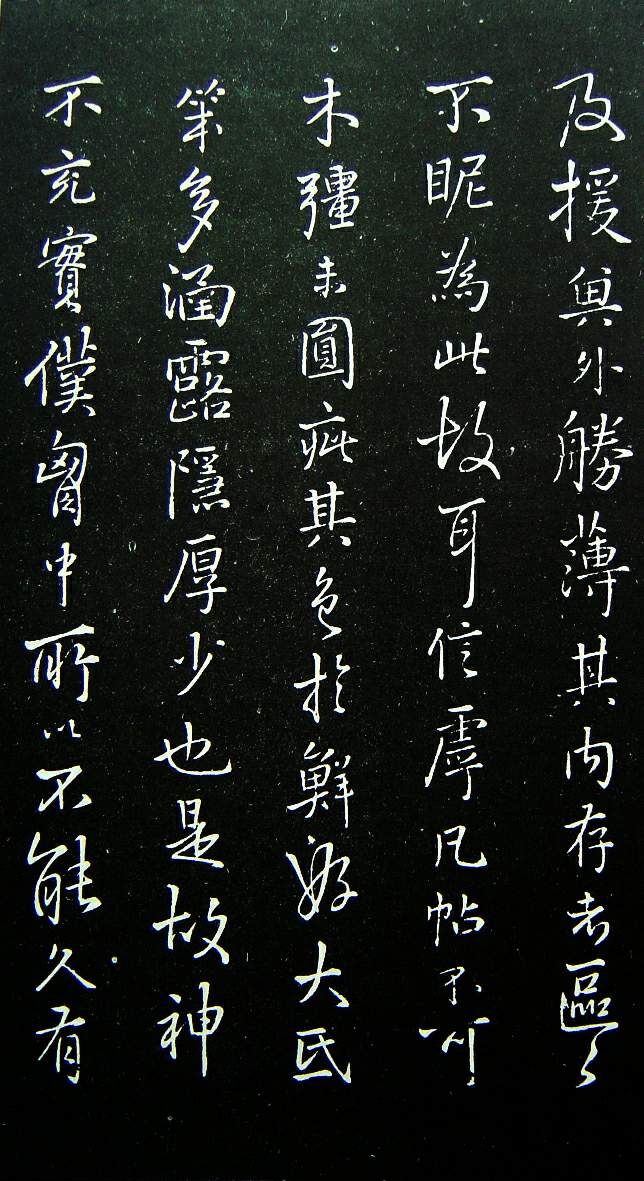 及援與外勝薄其内存者區々
不昵為此故耳信虖凡帖不可
木彊未圓疵其色於鮮好大氐
筆多涵露隱厚少也是故神
不充實僕胷中所以不能久有